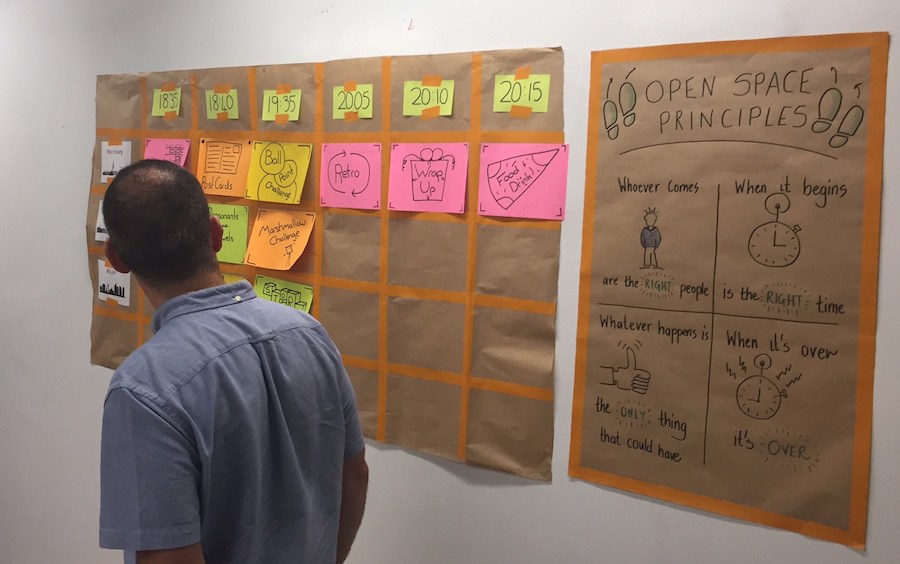 18:35
18:10
19:35
2005
20:10
20:15
Post Cards
Ball
Point
Challenge
Retro
Wrap
Up
Food &
Drink!
Marshmallow
Challenge
OPEN SPACE
PRINCIPLES
Whoever comes
are the RIGHT people
When it begins
is the RIGHT time
Whatever happens is
the ONLY thing
that could have
When it's over
it's OVER